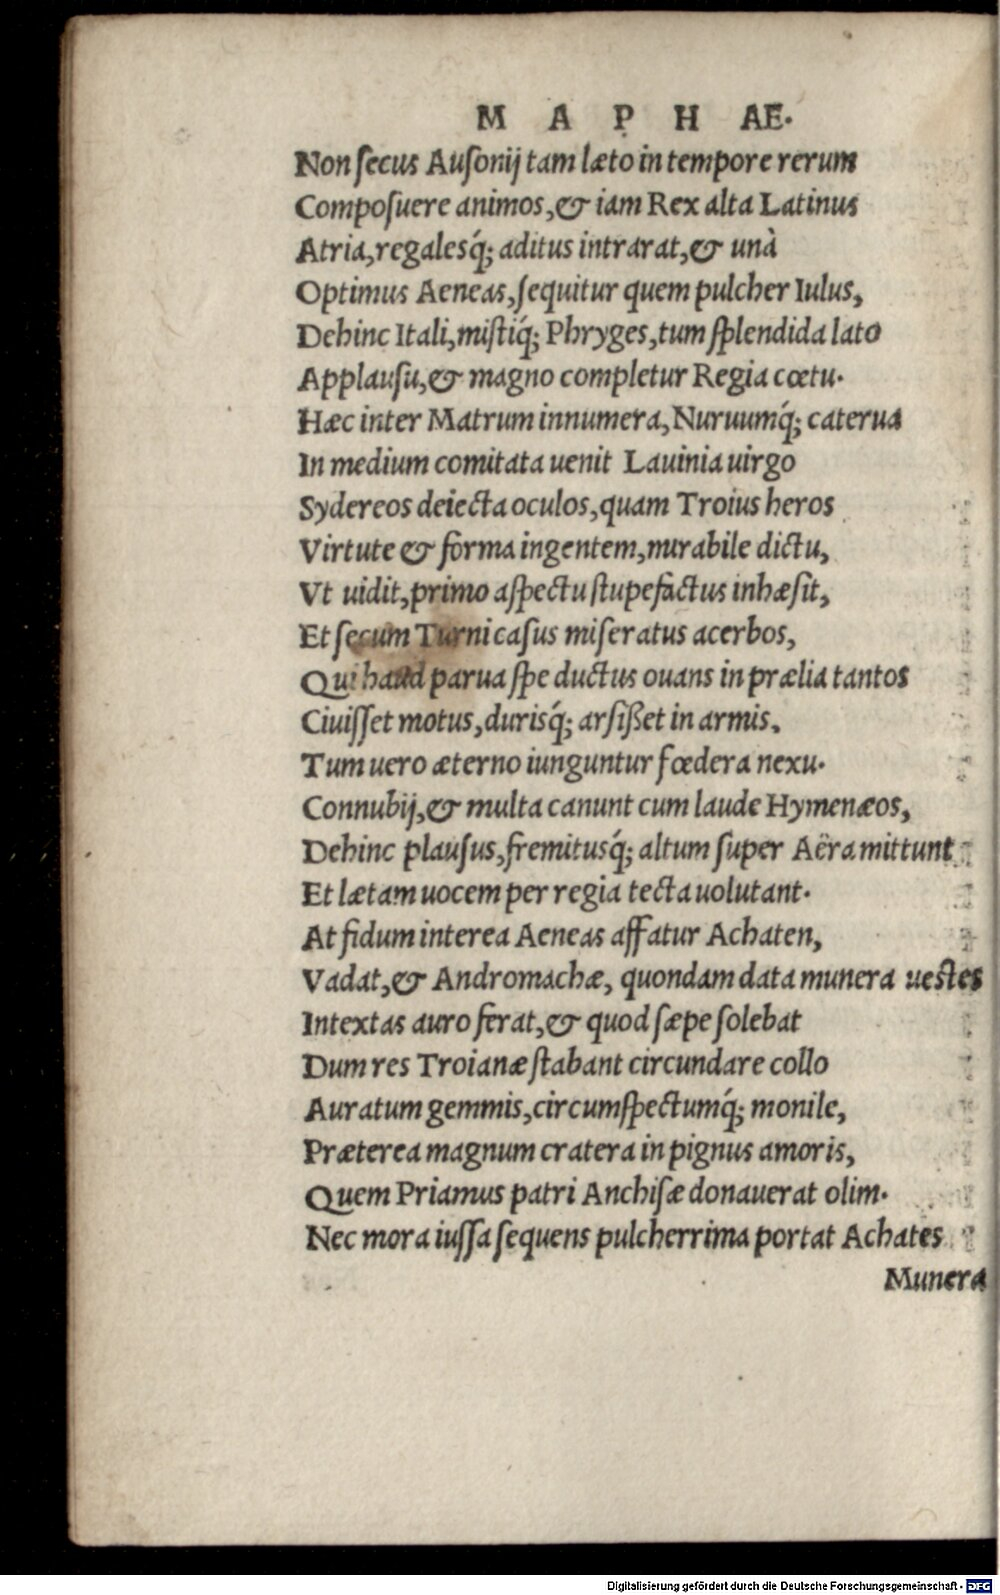 M A P H AE.
Non ſecus Auſonij tam læto in tempore rerum
Compoſuere animos,& iam Rex alta Latinus
Atria,regalesq́; aditus intrarat,& unà
Optimus Aeneas,ſequitur quem pulcher Iulus,
Dehinc Itali,miſtiq́; Phryges,tum ſplendida lato
Applauſu,& magno completur Regia cœtu.
Hæc inter Matrum innumera,Nuruumq́; caterua
In medium comitata uenit Lauinia uirgo
Sydereos deiecta oculos,quam Troius heros
Virtute & forma ingentem,mirabile dictu,
Vt uidit,primo aſpectu ſtupefactus inhæſit,
Et ſecum Turni caſus miſeratus acerbos,
Qui haud parua ſpe ductus ouans in prælia tantos
Ciuiſſet motus,durisq́; arſißet in armis.
Tum uero æterno iunguntur fœdera nexu.
Connubij,& multa canunt cum laude Hymenæos,
Dehinc plauſus,fremitusq́; altum ſuper Aëra mittunt
Et lætam uocem per regia tecta uolutant.
At fidum interea Aeneas affatur Achaten,
Vadat,& Andromachæ, quondam data munera ueſtes
Intextas auro ferat,& quod ſæpe ſolebat
Dum res Troianæ ſtabant circundare collo
Auratum gemmis,circumſpectumq́; monile,
Præterea magnum cratera in pignus amoris,
Quem Priamus patri Anchiſæ donauerat olim.
Nec mora iuſſa ſequens pulcherrima portat Achates
Munera
Digitalisierung gefördert durch die Deutsche Forschungsgemeinschaft - DFG